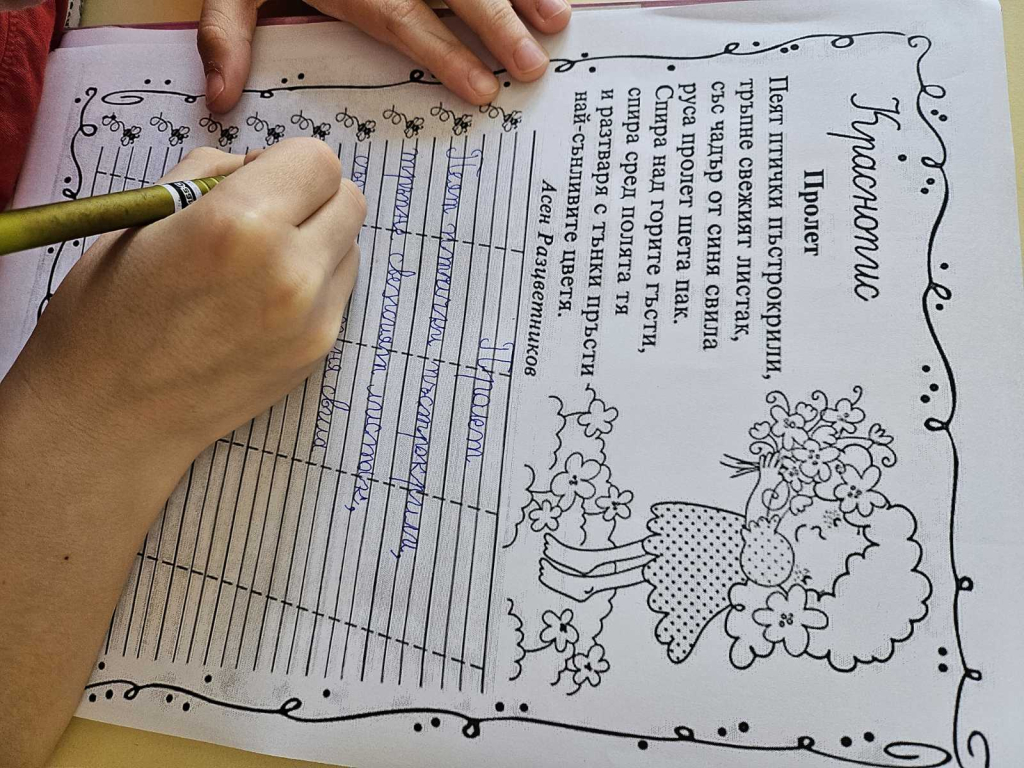 Краснопис
Пролет
Пеят птички пъстрокрили,
тръпне свежият листак,
със чадър от синя свила
руса пролет шета пак.
Спира над горите гъсти,
спира сред полята тя
и разтваря с тънки пръсти
най-сънливите цветя.
Асен Разцветников
Пролет
Пеят птички пъстрокрили,
тръпне свежият листак,
свила